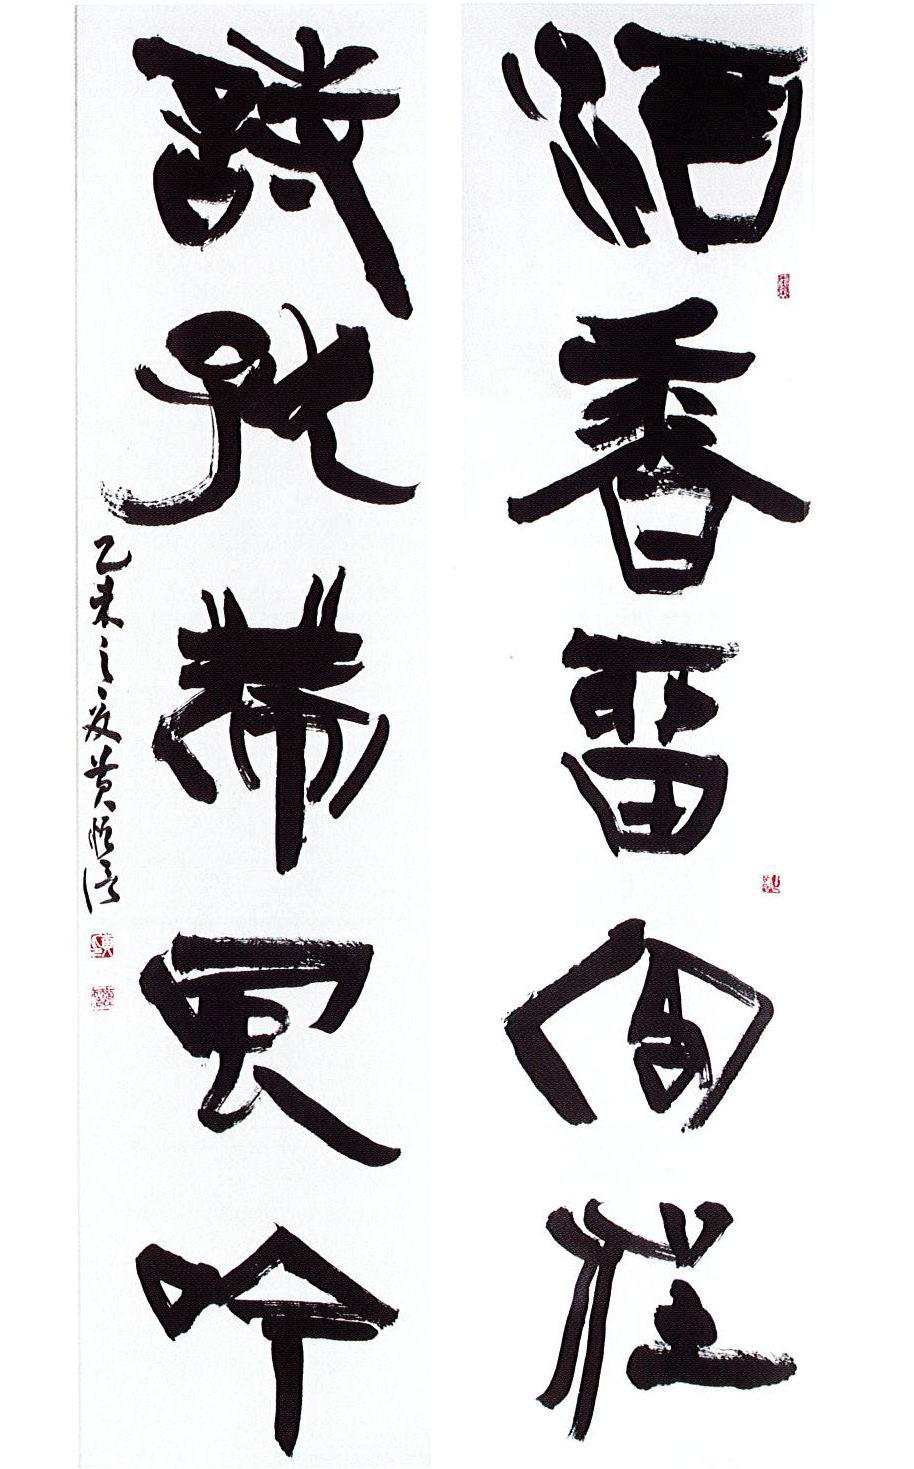 酒香留客住
詩好帶風吟
乙未之夏黄